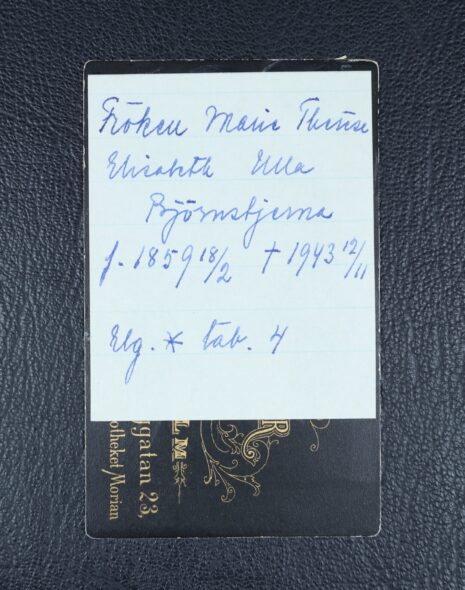 Fröken Marie Therèse
Elisabeth Ella
Björnstjerna
f. 1859 18/2 † 1943 12/11
Elg. * tab. 4
LM
ggatan 23,
otheket Morian
R